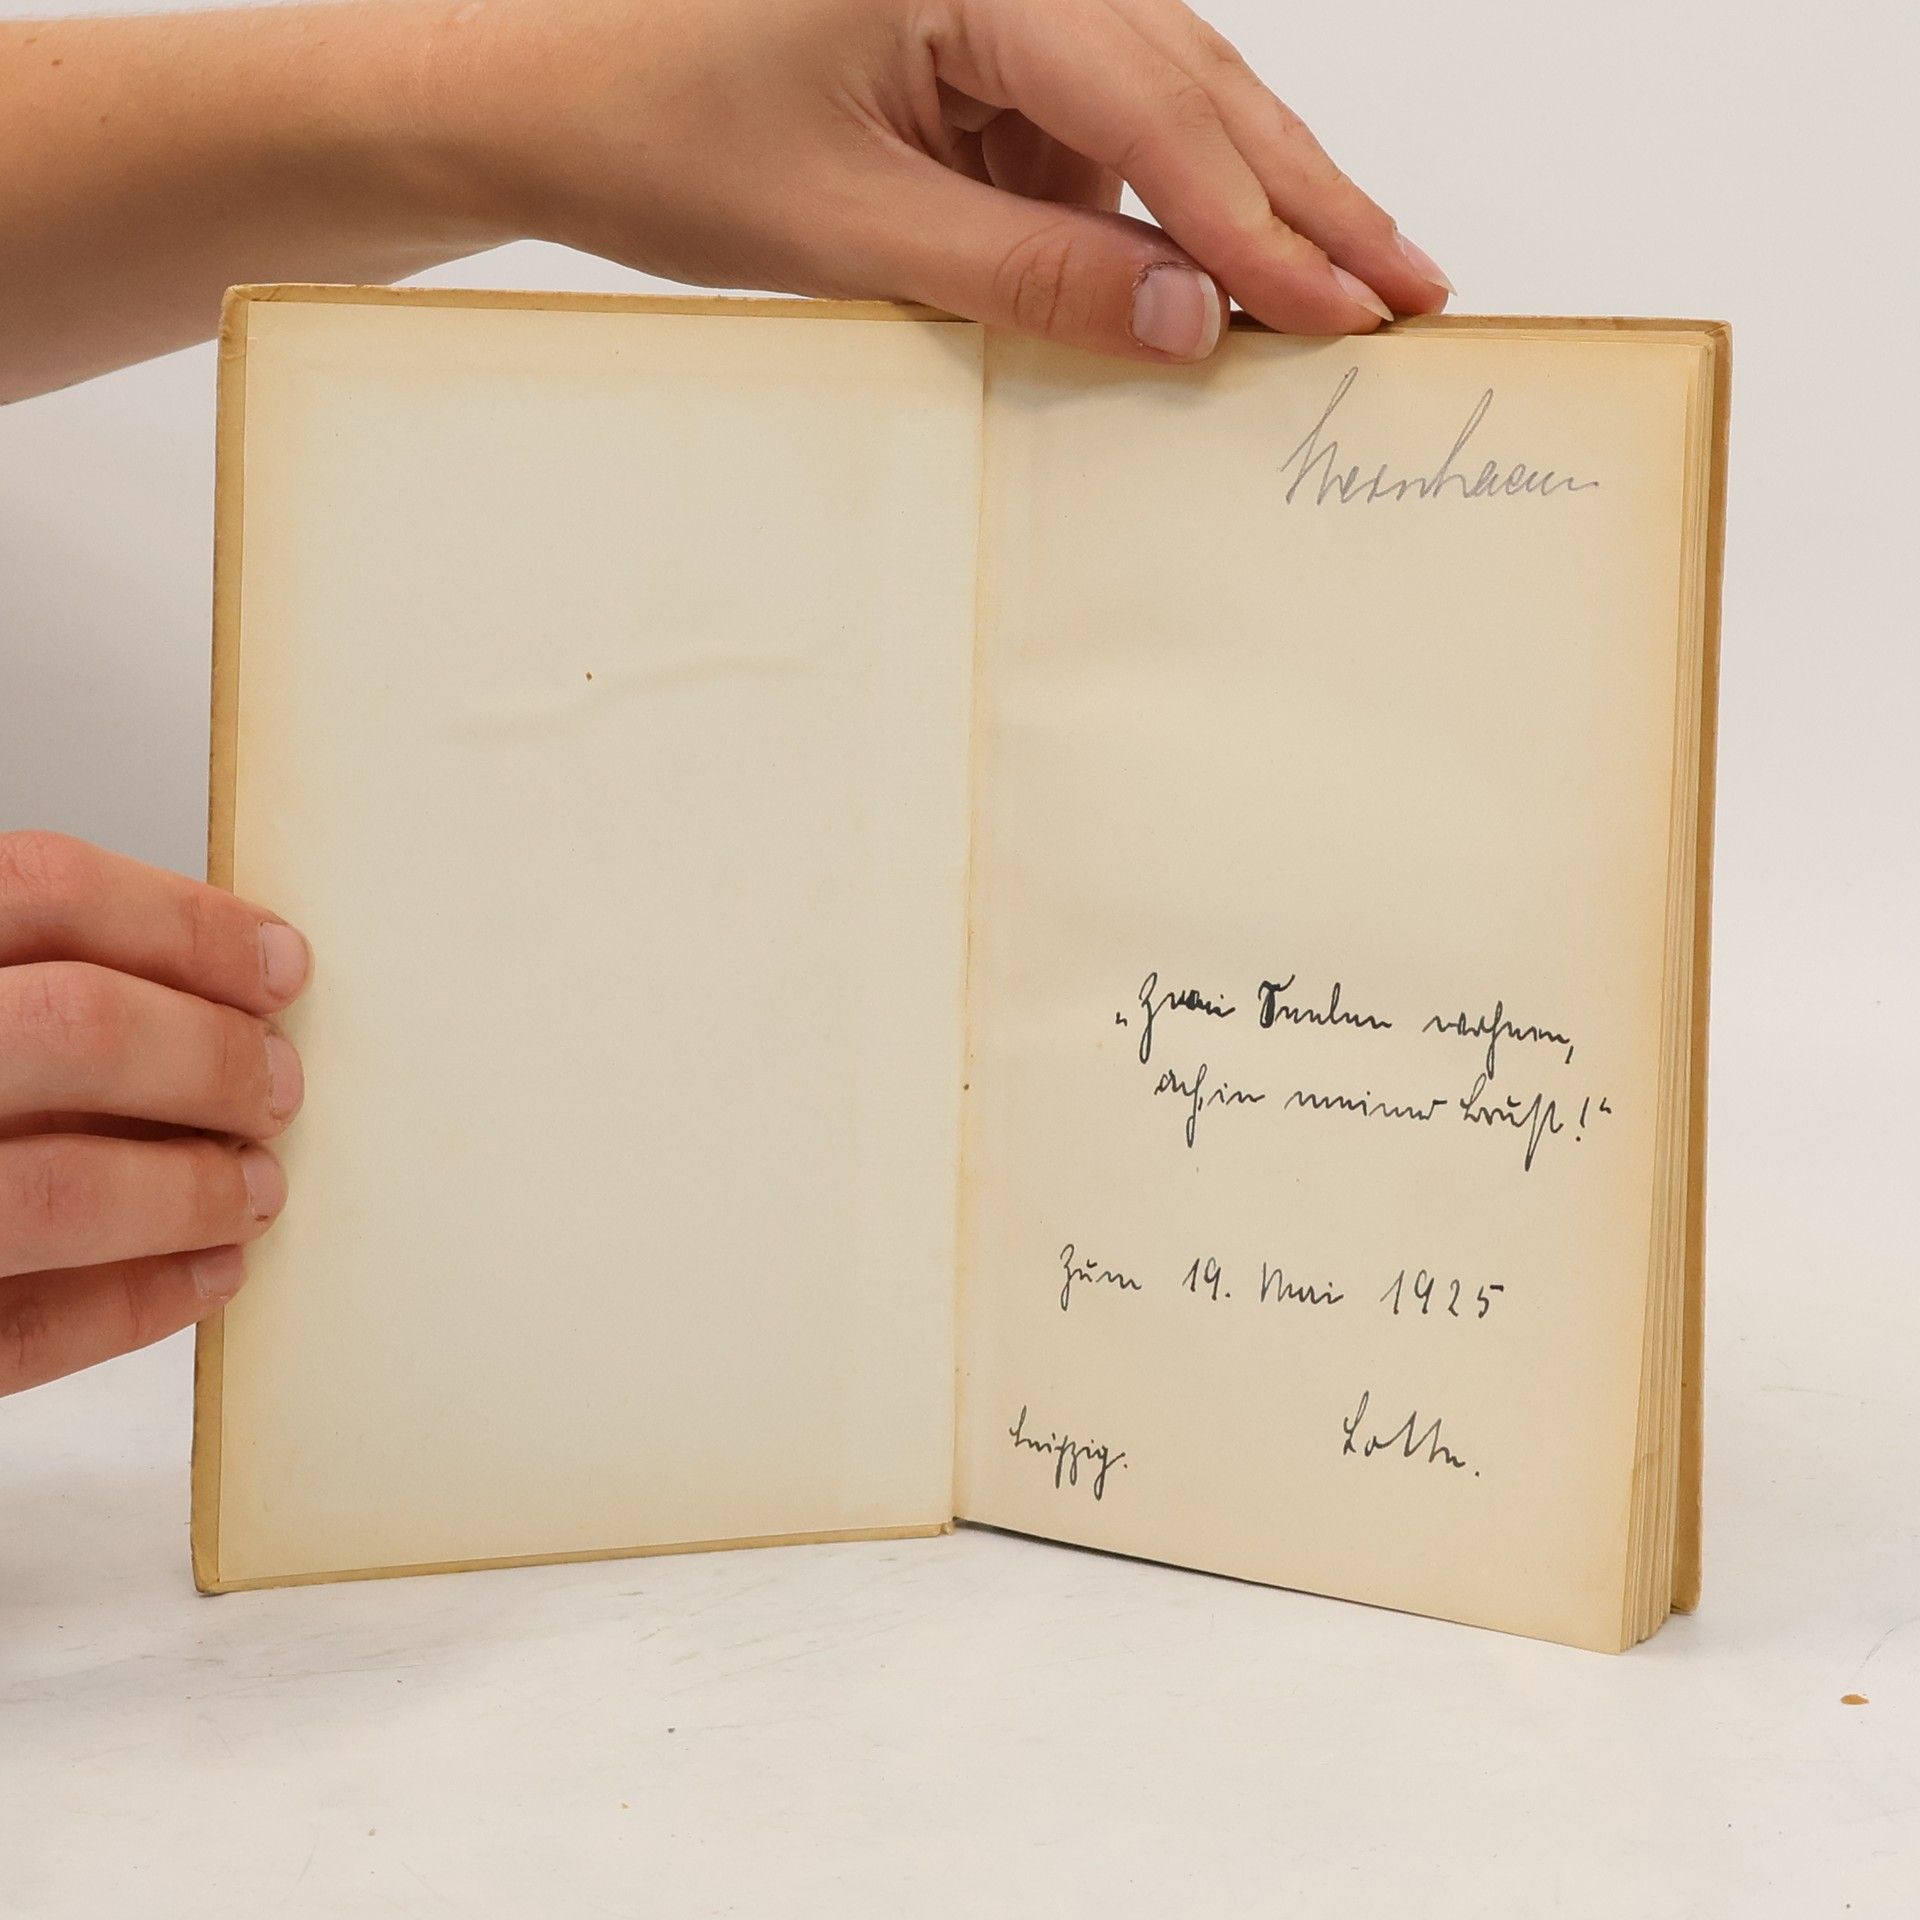 „Zwei Seelen wohnen,
ach, in meiner Brust!“
Zum 19. Mai 1925
Leipzig. Lotte.